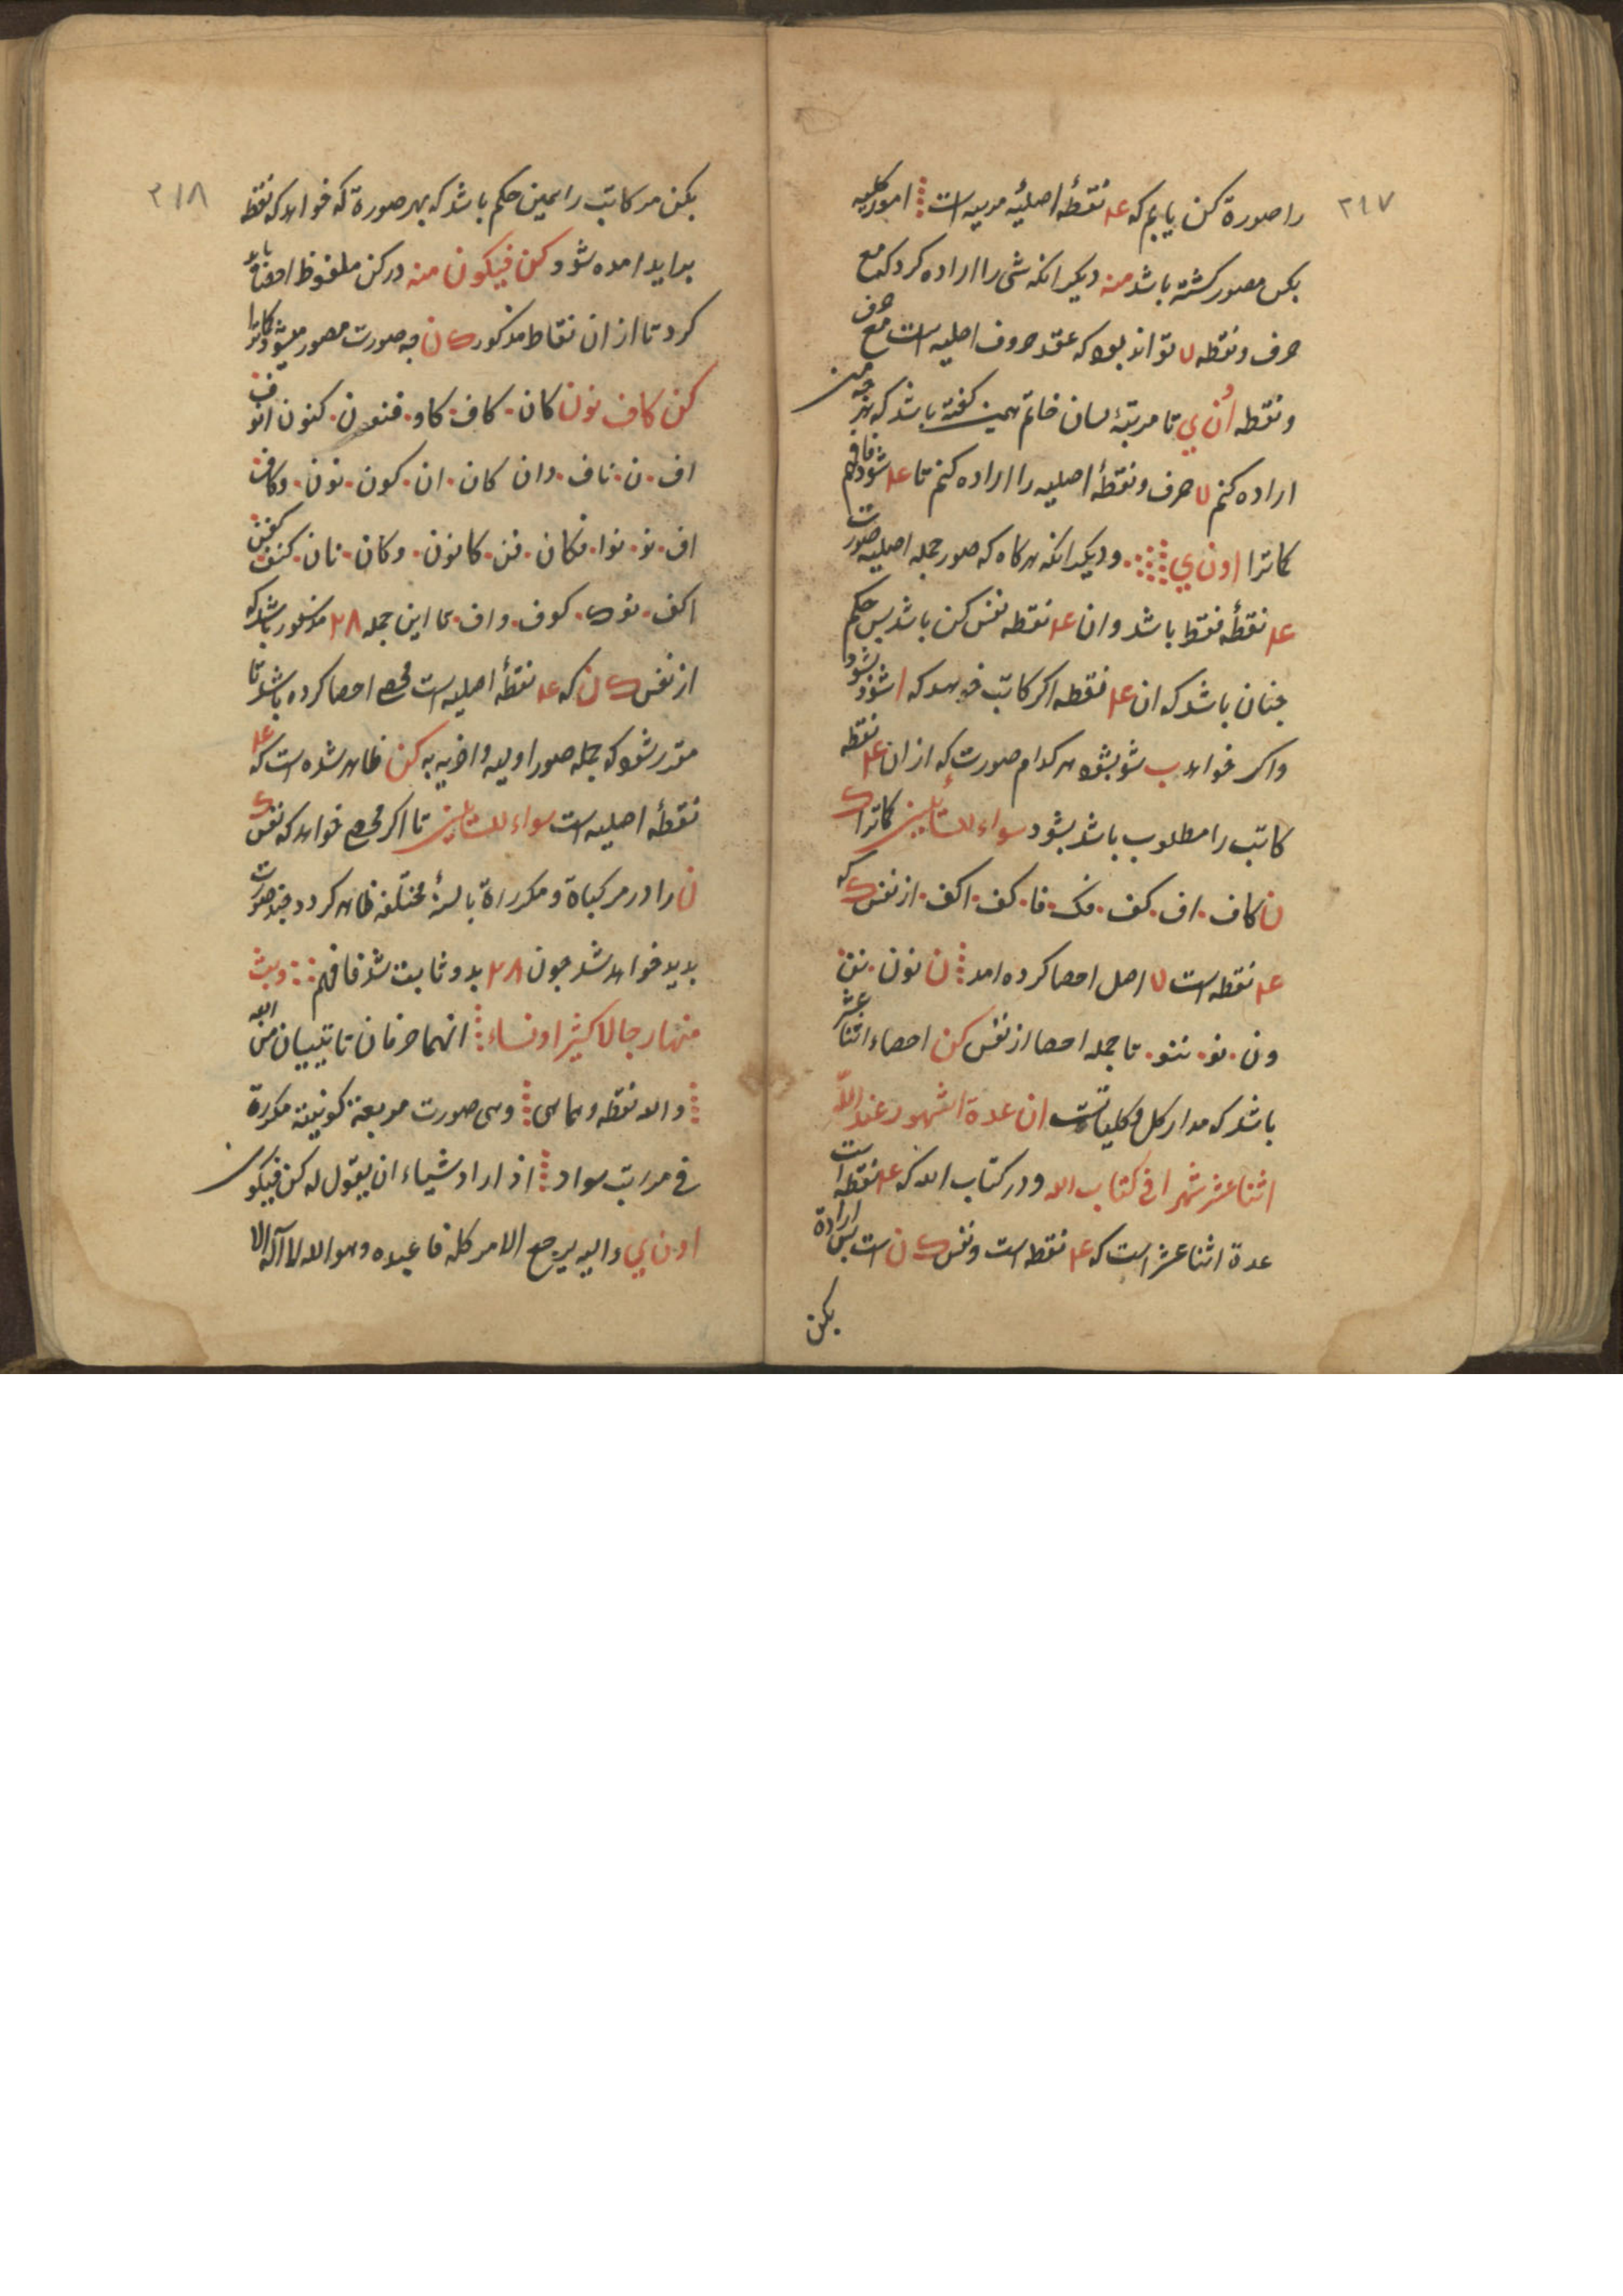 ٢١٧
را صورة کن یابم که ١٢ نقطهٔ اصلیه مربیه است امور کلیه
بکن مصور کشته باشد منه دیکر انکه شی را اراده کرد که مع
حرف و نقطه لا تواند بود که عقد حروف اصلیه است مع حرف
و نقطه اُن ي تا مرتبهٔ لسان خاتم همین کفته باشد که هر چه من
اراده کنم لا حرف و نقطهٔ اصلیه را اراده کنم تا ١٢ شود فافهم
کاترا اون ي ودیکر انکه هرکاه که صور جمله اصلیه صورت
١٢ نقطهٔ فقط باشد و ان ١٢ نقطه نفس کن باشد پس حکم
جنان باشد که ان ١٢ نقطه اکر کاتب خواهد که ا شود بشود
واکر خواهد ب شو بشود هرکدام صورت که از ان ١٢ نقطه
کاتب را مطلوب باشد بشود سواء للسائلین کاترا ک
ن کاف اف کف فک فا کف اکف از نفس ک که
١٢ نقطه است لا اصل احصا کرده امد ن نون نن
ون نو ننو تا جمله احصا از نفس کن احصاء اثنا عشر
باشد که مدار کل و کلیاتست ان عدة الشهور عند الله
اثنا عشر شهرا فی کتاب الله و در کتاب الله که ١٢ نقطه است
عدة اثنا عشر است که ١٢ نقطه است و نفس ک ن است پس ارادة
بکن
٢١٨
بکن مر کاتب را همین حکم باشد که بهر صورة که خواهد که نقطه
بداید امده شود کن فیکون منه در کن ملفوظ احصا باید
کرد تا از ان نقاط مذکور ک ن چه صورت مصور میشود کاترا
کن کاف نون کان کاف کاو فنون کنون انو ف
اف ن ناف وان کان ان کون نون وکاف
اف نو نوا فکان فن کانون وکان نان کنف کفن
اکف نوک کوف واف تا این جمله ٢٨ مذکور باشد که
از نفس ک ن که ١٢ نقطهٔ اصلیه است محصی احصا کرده باشد تا
مقرر شود که جمله صور اولیه و اخریه به کن ظاهر شده است که ١٢
نقطهٔ اصلیه است سواء للسائلین تا اکر محصی خواهد که نفس ک
ن را در مرکباة و مکرراة بالسنهٔ مختلفه ظاهر کردد چند صورت
بدید خواهد شد جون ٢٨ بدو ثابت شد فافهم وبث
منهما رجالا کثیرا و نساء انهما حرفان تاتییان من الله
والله نقطه وهما هی وهی صورت مربعة کونیته مکررة
فی مراتب سواد اذ اراد شیاء ان یقول له کن فیکون
اون ي والیه یرجع الامر کله فاعبده وهو الله لا اله الا